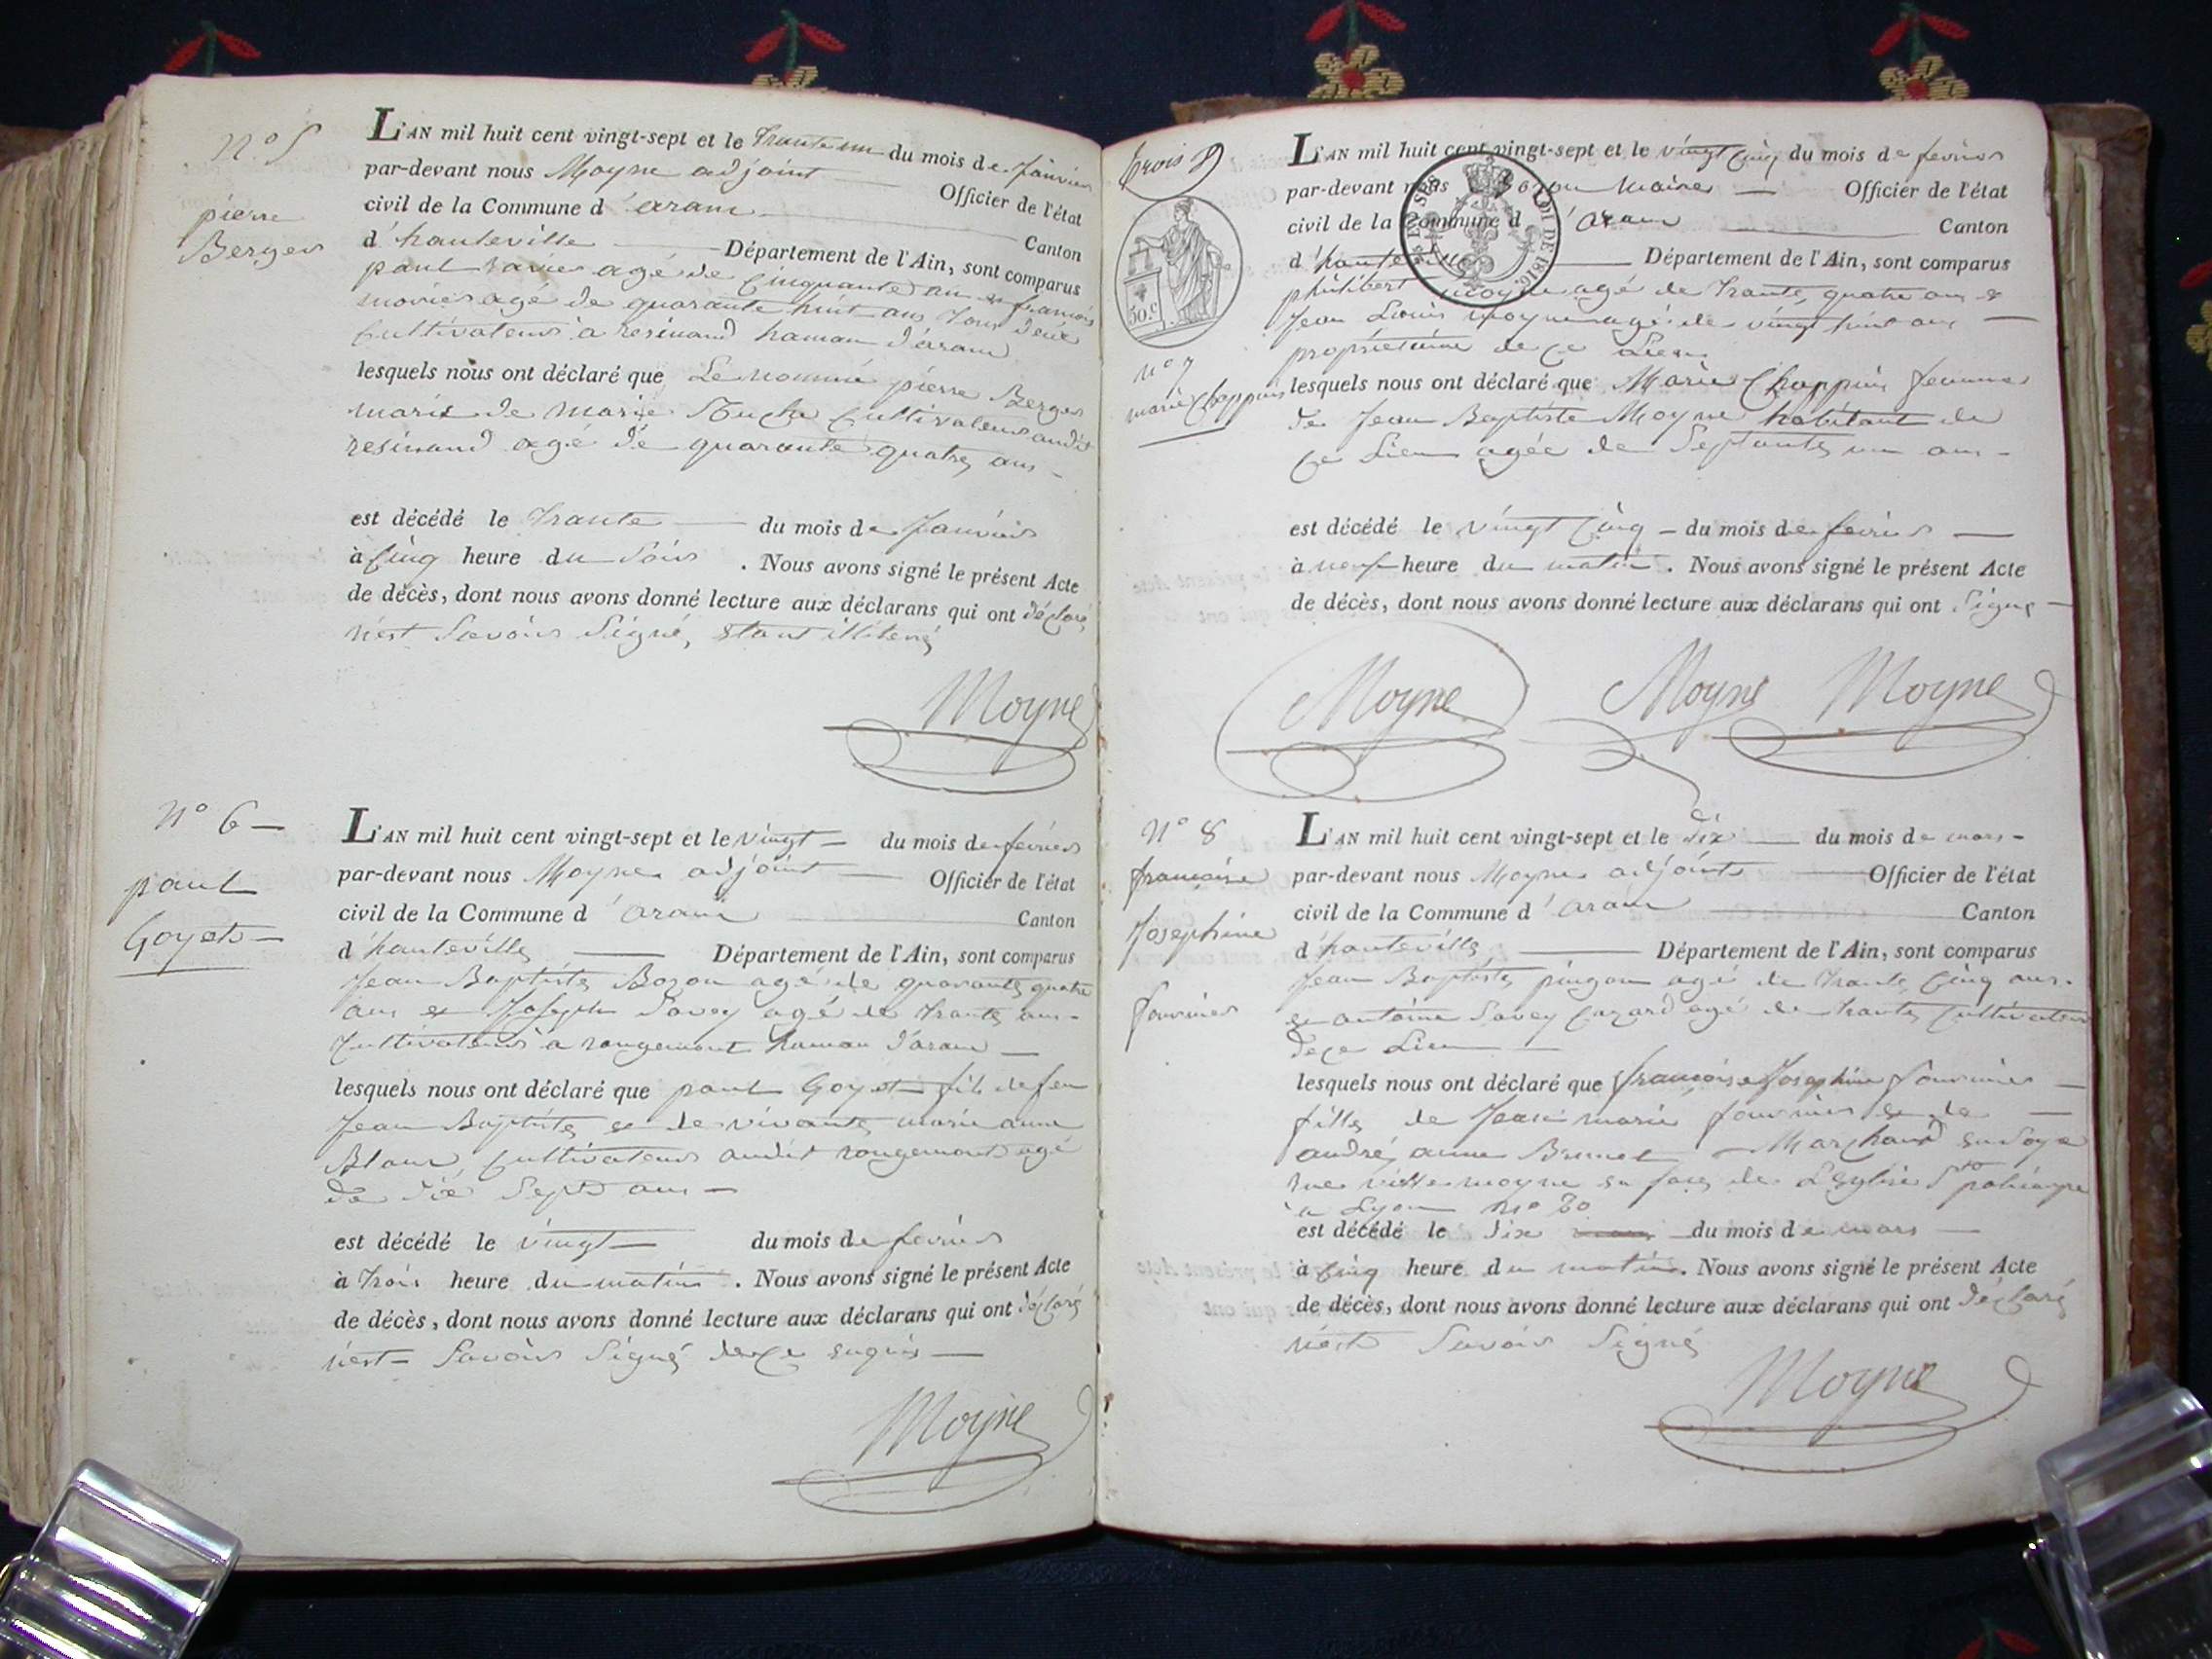 n.o 5
pierre
Berger
L'AN mil huit cent vingt-sept et le trante un du mois de Janvier
par-devant nous Moyne adjoint Officier de l'état
civil de la Commune d'aranc Canton
d'hauteville Département de l'Ain, sont comparus
paul agé de Cinquante an et francois
agé de quarante huit ans tous deux
Cultivateurs a resinand hamau d'aranc
lesquels nous ont déclaré que Le nommé pierre Berger
marie de marie Cultivateur audit
resinand agé de quarante quatre ans
est décédé le trante du mois de Janvier
à Cinq heure du Soir . Nous avons signé le présent Acte
de décès, dont nous avons donné lecture aux déclarans qui ont déclaré
n'est Savoir Signé, etant illiteré
Moyne
n.o 6
paul
Goyet
L'AN mil huit cent vingt-sept et le vingt du mois de fevrier
par-devant nous Moyne adjoint Officier de l'état
civil de la Commune d'aranc Canton
d'hauteville Département de l'Ain, sont comparus
Jean Baptiste Bozon agé de quarante quatre
ans et Joseph Savey agé de trante ans
Cultivateurs a rougemont hamau d'aranc
lesquels nous ont déclaré que paul Goyet fils de feu
Jean Baptiste et de vivante marie anne
Blanc, Cultivateur audit rougemont agé
de dix Sept ans
est décédé le vingt du mois de fevrier
à trois heure du matin . Nous avons signé le présent Acte
de décès, dont nous avons donné lecture aux déclarans qui ont déclaré
n'est Savoir Signé de ce enquis
Moyne
trois
50.c
n.o 7
marie Chappuis
L'AN mil huit cent vingt-sept et le vingt Cinq du mois de fevrier
par-devant nous Bozon Maire Officier de l'état
civil de la Commune d'aranc Canton
d'hauteville Département de l'Ain, sont comparus
philibert moyne agé de trante quatre ans et
Jean Louis moyne agé de vingt huit ans
propriétaire de ce Lieu
lesquels nous ont déclaré que Marie Chappuis femme
de Jean Baptiste Moyne habitant de
ce Lieu agée de Septante un ans
est décédé le vingt Cinq du mois de fevrier
à neuf heure du matin . Nous avons signé le présent Acte
de décès, dont nous avons donné lecture aux déclarans qui ont Signé
Moyne Moyne Moyne
n.o 8
francoise
Josephine
fournier
L'AN mil huit cent vingt-sept et le dix du mois de mars
par-devant nous Moyne adjoint Officier de l'état
civil de la Commune d'aranc Canton
d'hauteville Département de l'Ain, sont comparus
Jean Baptiste pingon agé de trante Cinq ans
et antoine Savey agé de trante Cultivateur
de ce Lieu
lesquels nous ont déclaré que francoise Josephine fournier
fille de Jean marie fournier et de
andré anne Brunet Marchand en Soye
rue vielle moyne en face de L'Eglise St policarpe
a Lyon no
est décédé le dix du mois de mars
à Cinq heure du matin . Nous avons signé le présent Acte
de décès, dont nous avons donné lecture aux déclarans qui ont déclaré
n'est Savoir Signé
Moyne